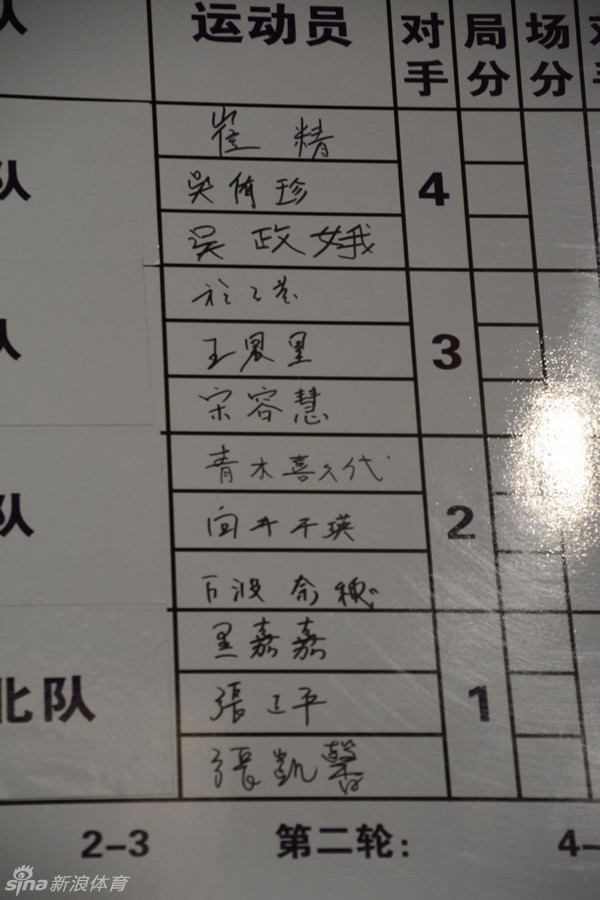 队 运动员 对手 局分 场分 对手
队 崔精 4
吴侑珍
吴政娥
队 於之莹 3
王晨星
宋容慧
队 青木喜久代 2
向井千瑛
万波奈穗
北队 黑嘉嘉 1
張正平
張凯馨
2-3 第二轮: 4-
sina新浪体育